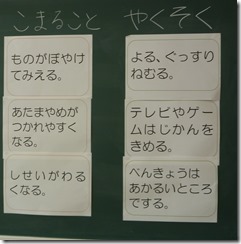 こまること
ものがぼやけ
てみえる。
あたまやめが
つかれやすく
なる。
しせいがわる
くなる。
やくそく
よる、ぐっすり
ねむる。
テレビやゲー
ムはじかんを
きめる。
べんきょうは
あかるいところ
でする。